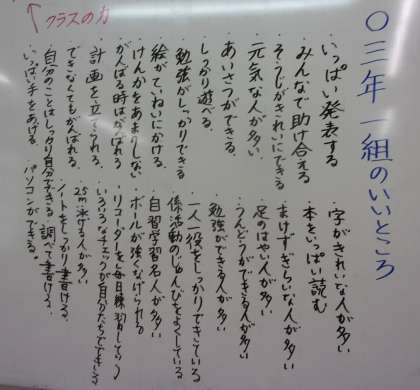 〇三年一組のいいところ
・いっぱい発表する
・みんなで助け合える
・そうじがきれいにできる
・元気な人が多い
・あいさつができる。
・しっかり遊べる。
・勉強がしっかりできる
・絵がていねいにかける。
・けんかをあまりしない
・がんばる時はがんばれる
・計画を立てられる。
・できなくてもがんばれる。
・自分のことはしっかり自分でできる
・いっぱい手をあげる。
・字がきれいな人が多い
・本をいっぱい読む
・まけずぎらいな人が多い
・足のはやい人が多い
・うんどうができる人が多い
・勉強ができる人が多い
・一人一役をしっかりできている
・係活動のじゅんびをよくしている
・自習学習名人が多い
・ボールが強くなげられる
・リコーダーを毎日練習してる
・いろいろなチェックが自分たちでできる
・25m泳げる人が多い
・ノートをしっかり書ける、調べて書ける。
・パソコンができる。
クラスの力